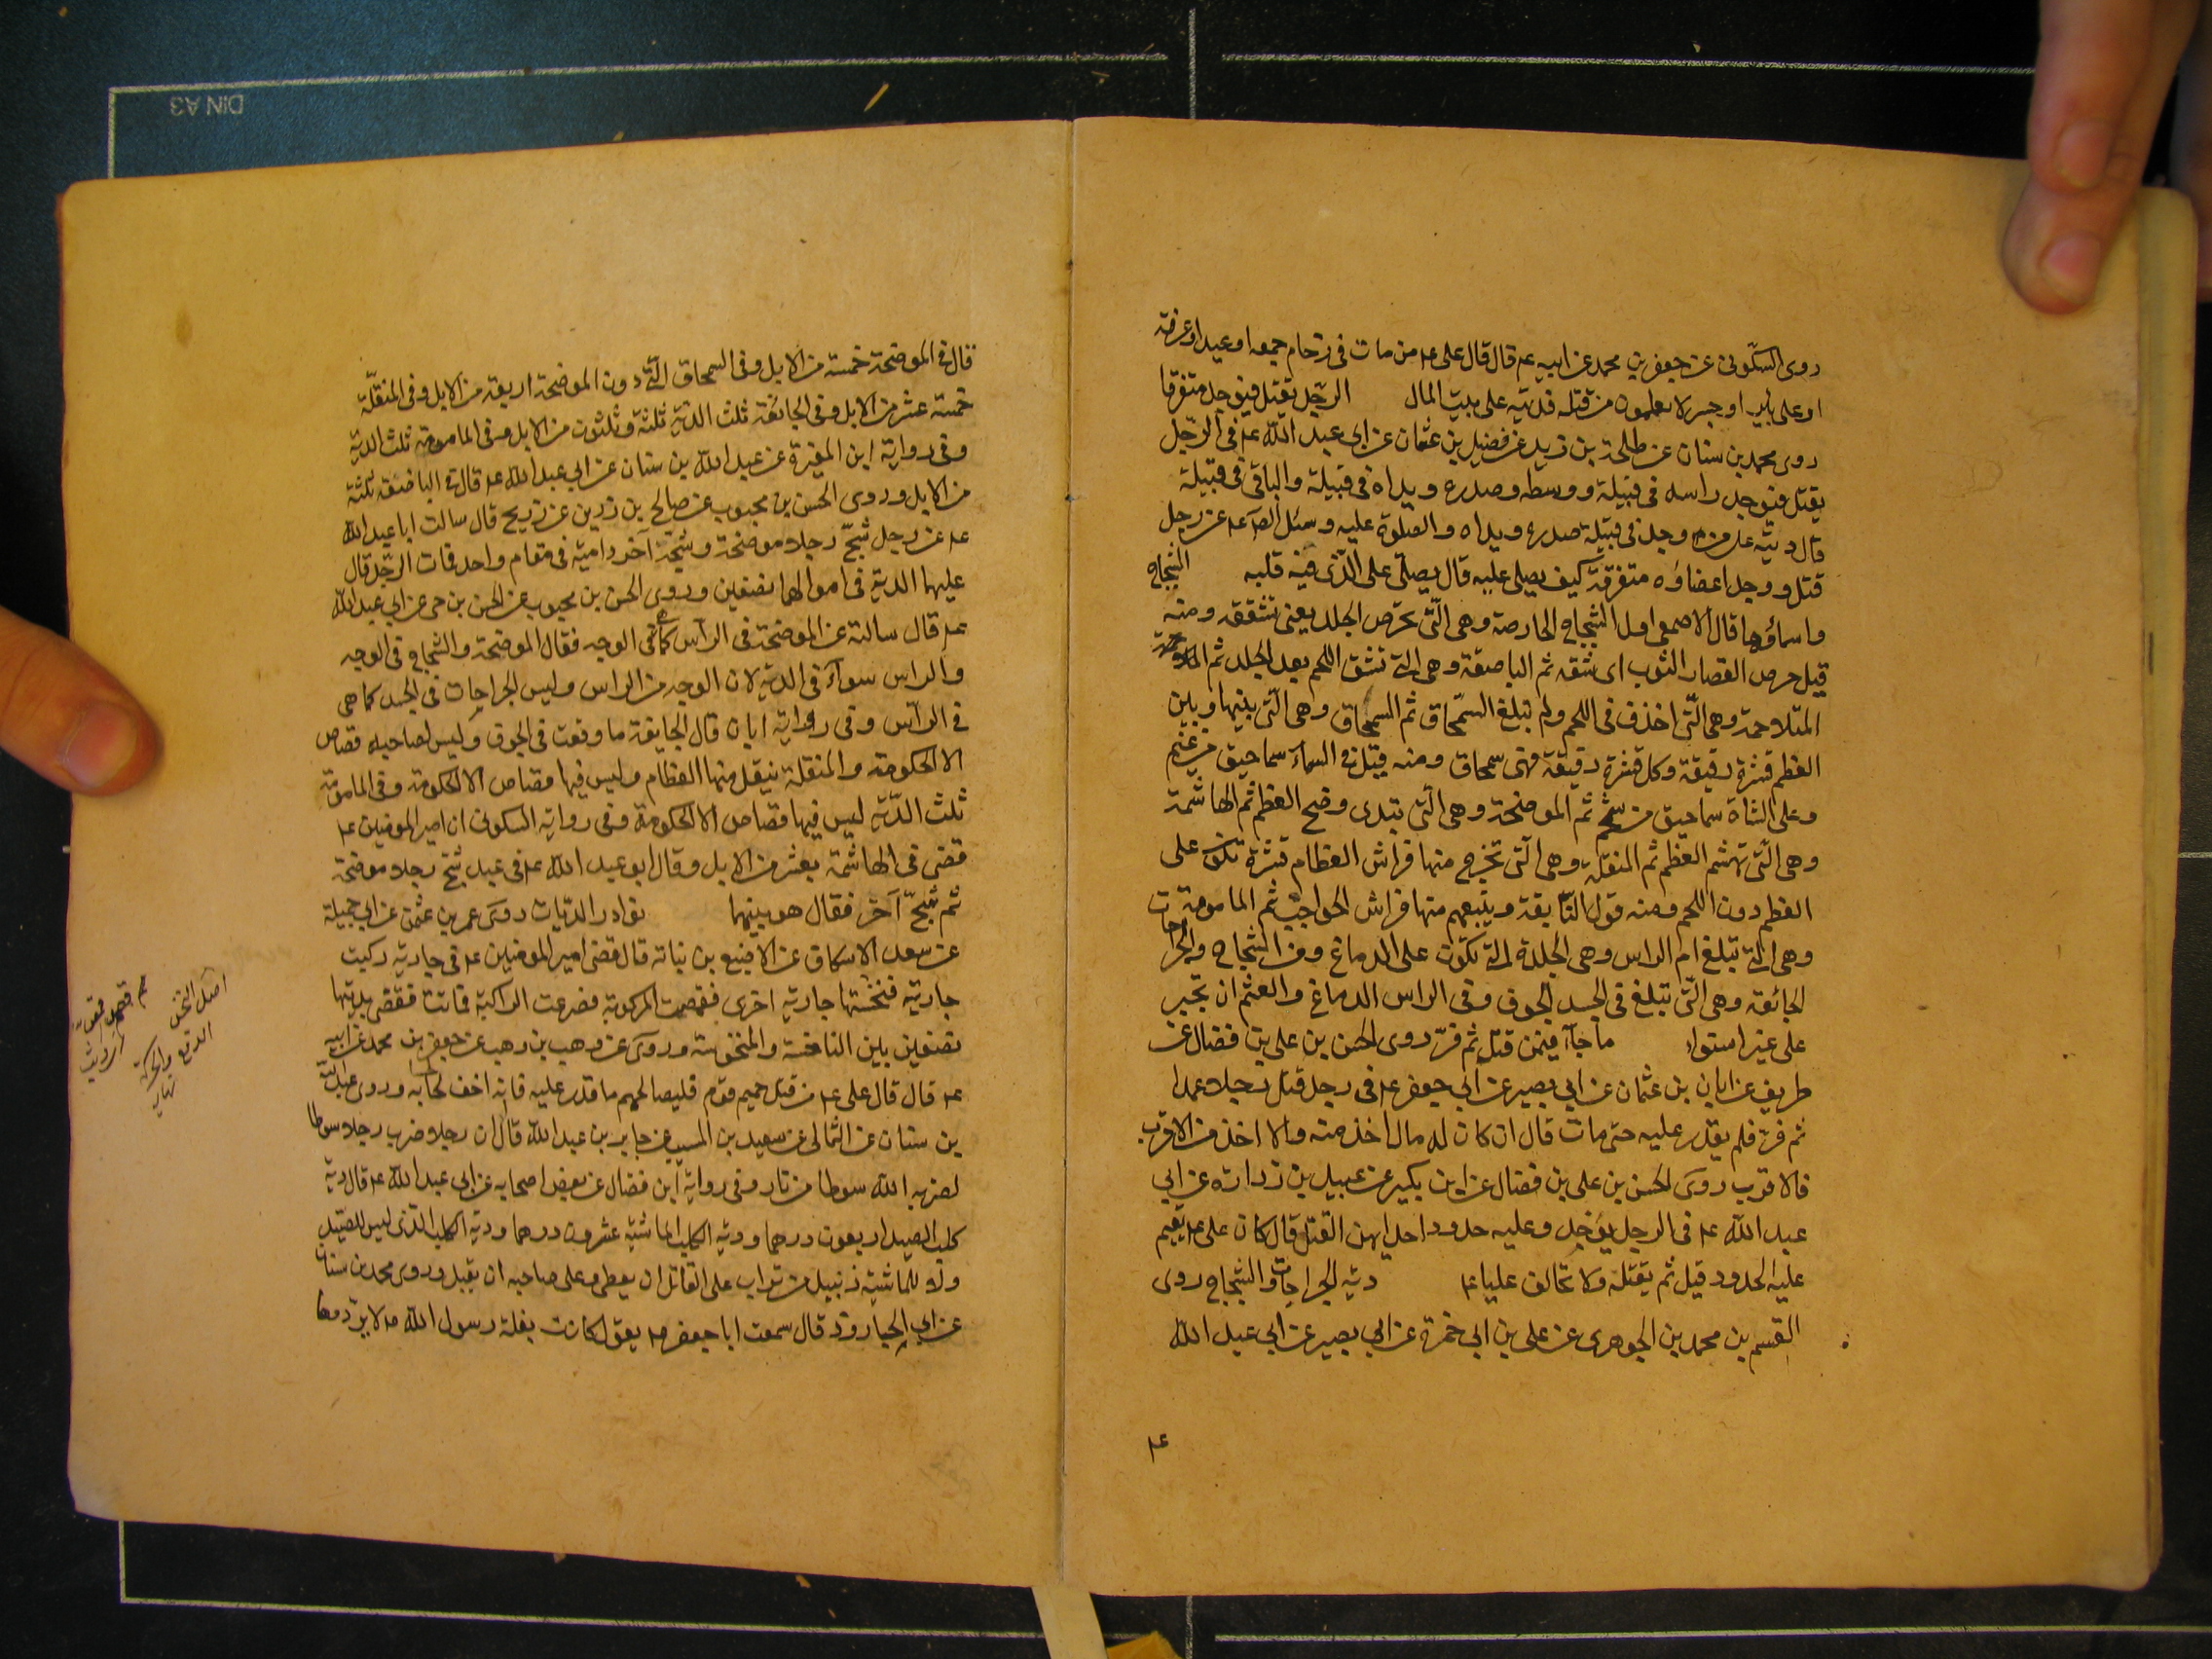 روى السكونى عن جعفر بن محمد عن ابيه ع م قال قال على ع م من مات فى زحام جمعه او عيد او عرفة
او على بئر او جسر لا يعلمون من قتله فديته على بيت المال الرجل يقتل فيوجد متفرقا
روى محمد بن سنان عن طلحة بن زيد عن فضيل بن عثمان عن ابى عبد الله ع م فى الرجل
يقتل فيوجد راسه فى قبيلة ووسطه وصدره ويداه فى قبيلة والباقى فى قبيلة
قال ديته على من وجد فى قبيلته صدره ويداه والصلوة عليه وسئل الصادق ع م عن رجل
قتل ووجد اعضاؤه متفرقة كيف يصلى عليه قال يصلى على الذى فيه قلبه الشجاج
واسماؤها قال الاصمعى اول الشجاج الحارصة وهى التى تحرص الجلد يعنى تشققه ومنه
قيل حرص القصار الثوب اى شقه ثم الباضعة وهى التى تشق اللحم بعد الجلد ثم
المتلاحمة وهى التى اخذت فى اللحم ولم تبلغ السمحاق ثم السمحاق وهى التى بينها وبين
العظم قشرة رقيقة وكل قشرة رقيقة فهى سمحاق ومنه قيل فى السماء سماحيق من غيم
وعلى الشاة سماحيق من شحم ثم الموضحة وهى التى تبدى وضح العظم ثم الهاشمة
وهى التى تهشم العظم ثم المنقلة وهى التى تخرج منها فراش العظام قشرة تكون على
العظم دون اللحم ومنه قول النابغة ويتبعهم منها فراش الحواجب ثم المامومة
وهى التى تبلغ ام الراس وهى الجلدة التى تكون على الدماغ ومن الشجاج والجراحات
الجائفة وهى التى تبلغ فى الجسد الجوف وفى الراس الدماغ والعثم ان تجبر
على غير استواء ما جاء فيمن قتل ثم فرّ روى الحسن بن على بن فضال عن
طريف عن ابان بن عثمان عن ابى بصير عن ابى جعفر ع م فى رجل قتل رجلا عمدا
ثم فر فلم يقدر عليه حتى مات قال ان كان له مال اخذ منه والا اخذ من الاقرب
فالاقرب روى الحسن بن على بن فضال عن ابن بكير عن عبيد بن زرارة عن ابى
عبد الله ع م فى الرجل يؤخذ وعليه حدود احديهن القتل قال كان على ع م يقيم
عليه الحدود قبل ثم يقتله ولا تخالف عليا ع م دية الجراحات والشجاج روى
القسم بن محمد بن الجوهرى عن على بن ابى حمزة عن ابى بصير عن ابى عبد الله
ع م
قال فى الموضحة خمسة من الابل وفى السمحاق التى دون الموضحة اربعة من الابل وفى المنقلة
خمسة عشر من الابل وفى الجائفة ثلث الدية ثلثة وثلثون من الابل وفى المامومة ثلث الدية
وفى رواية ابن المغيرة عن عبد الله بن سنان عن ابى عبد الله ع م قال فى الباضعة ثلثة
من الابل وروى الحسن بن محبوب عن صالح بن رزين عن ذريح قال سالت ابا عبد الله
ع م عن رجل شج رجلا موضحة وشجه آخر دامية فى مقام واحد فمات الرجل قال
عليهما الدية فى اموالهما نصفين وروى الحسن بن محبوب عن الحسن بن حى عن ابى عبد الله
ع م قال سالته عن الموضحة فى الراس كما فى الوجه فقال الموضحة والشجاج فى الوجه
والراس سواء فى الدية لان الوجه من الراس وليس الجراحات فى الجسد كما هى
فى الراس وفى رواية ابان قال الجايفة ما وقعت فى الجوف وليس لصاحبها قصاص
الا الحكومة والمنقلة ينقل منها العظام وليس فيها قصاص الا الحكومة وفى المامومة
ثلث الدية ليس فيها قصاص الا الحكومة وفى رواية السكونى ان امير المومنين ع م
قضى فى الهاشمة بعشر من الابل وقال ابو عبد الله ع م فى عبد شج رجلا موضحة
ثم شج آخر فقال هو بينهما نوادر الديات روى عمر بن عثمن عن ابى جميلة
عن سعد الاسكاف عن الاصبغ بن نباته قال قضى امير المومنين ع م فى جارية ركبت
جارية فنخستها جارية اخرى فقمصت المركوبة فصرعت الراكبة فماتت فقضى بديتها
نصفين بين الناخسة والمنخوسة وروى عن وهب بن وهب عن جعفر بن محمد عن ابيه
ع م قال قال على ع م من قتل حميم قوم فليصالحهم ما قدر عليه فانه اخف لحسابه وروى عبد الله
بن سنان عن الثمالى عن سعيد بن المسيب عن جابر بن عبد الله قال ان رجلا ضرب رجلا سوطا
لضربه الله سوطا من نار وفى رواية ابن فضال عن بعض اصحابه عن ابى عبد الله ع م قال دية
كلب الصيد اربعون درهما ودية الكلب الماشية عشرون درهما ودية الكلب الذى ليس للصيد
ولا للماشية زنبيل من تراب على القاتل ان يعطى وعلى صاحبه ان يقبل وروى محمد بن سنان
عن ابى الجارود قال سمعت ابا جعفر ع م يقول كانت بغلة رسول الله ص لا يردوها
اصل النخس
الدفع والحركة
نهاية